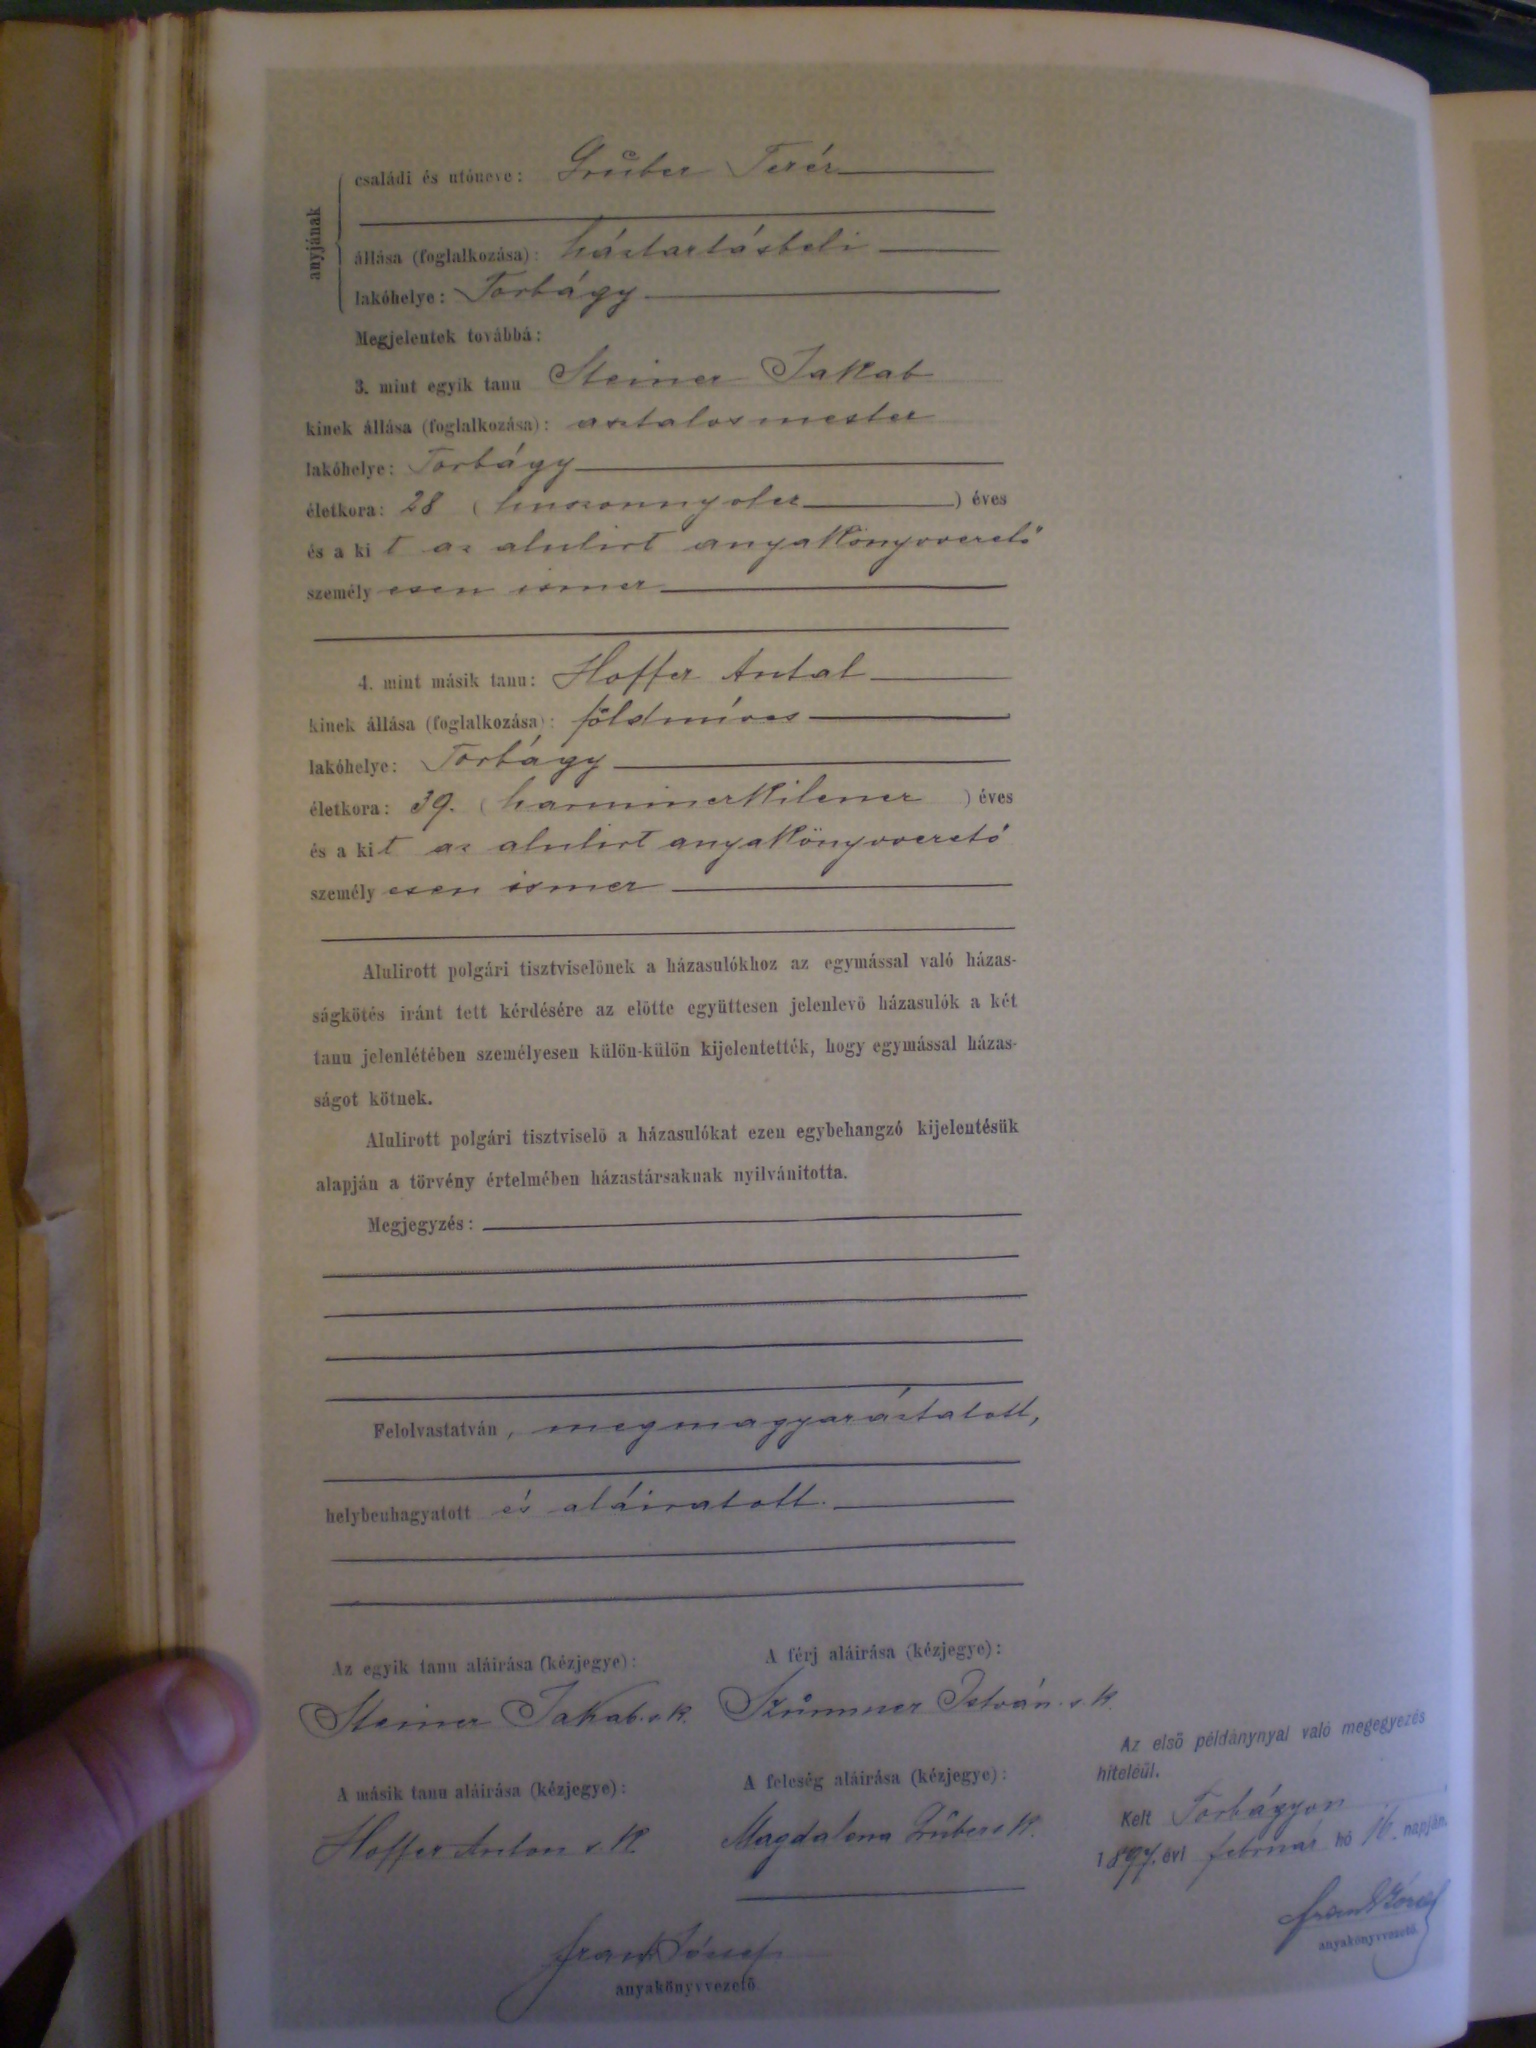 anyjának
családi és utóneve: Gruber Teréz
állása (foglalkozása): háztartásbeli
lakóhelye: Torbágy
Megjelentek továbbá:
3. mint egyik tanu Steiner Jakab
kinek állása (foglalkozása): asztalosmester
lakóhelye: Torbágy
életkora: 28 (huszonnyolcz) éves
és a kit az alulirt anyakönyvvezető
személyesen ismer
4. mint másik tanu: Hoffer Antal
kinek állása (foglalkozása): földmíves
lakóhelye: Torbágy
életkora: 39. (harminczkilencz) éves
és a kit az alulirt anyakönyvvezető
személyesen ismer
Alulirott polgári tisztviselönek a házasulókhoz az egymással való házas-
ságkötés iránt tett kérdésére az elötte együttesen jelenlevö házasulók a két
tanu jelenlétében személyesen külön-külön kijelentették, hogy egymással házas-
ságot kötnek.
Alulirott polgári tisztviselö a házasulókat ezen egybehangzó kijelentésük
alapján a törvény értelmében házastársaknak nyilvánitotta.
Megjegyzés:
Felolvastatván, megmagyaráztatott,
helybenhagyatott és aláiratott.
Az egyik tanu aláirása (kézjegye):
A férj aláirása (kézjegye):
Steiner Jakab s. k.
István s. k.
A másik tanu aláirása (kézjegye):
A feleség aláirása (kézjegye):
Hoffer Anton s. k.
Magdalena Gruber s. k.
József
anyakönyvvezetö
Az elsö példánynyal való megegyezés
hiteléül.
Kelt Torbágyon
1897. évi február hó 16. napján.
József
anyakönyvvezetö.